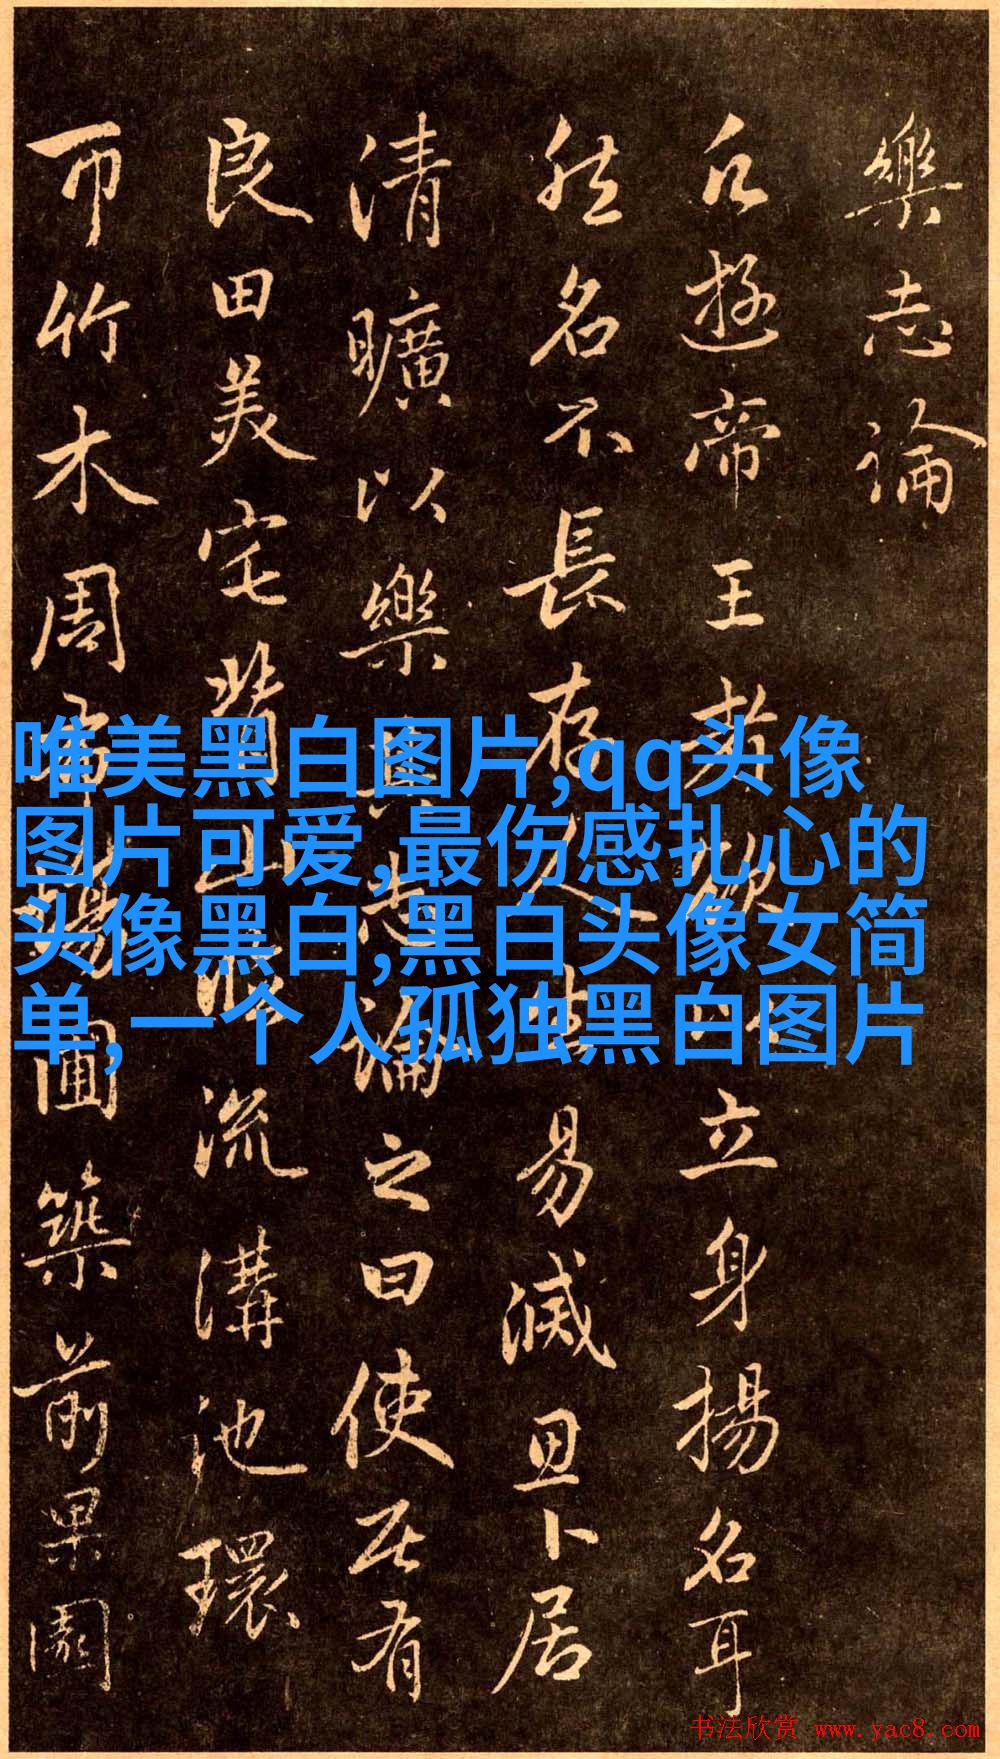 樂志論
凡遊帝王者欲以立身揚名耳
然名不長存人生易滅思卜居
清曠以樂其志論之曰使居有
良田美宅背山臨流溝池環
帀竹木周布場圃築前果園
唯美黑白图片,qq头像
图片可爱,最伤感扎心的
头像黑白,黑白头像女简
单,一个人孤独黑白图片
书法欣赏 www.yac8.com